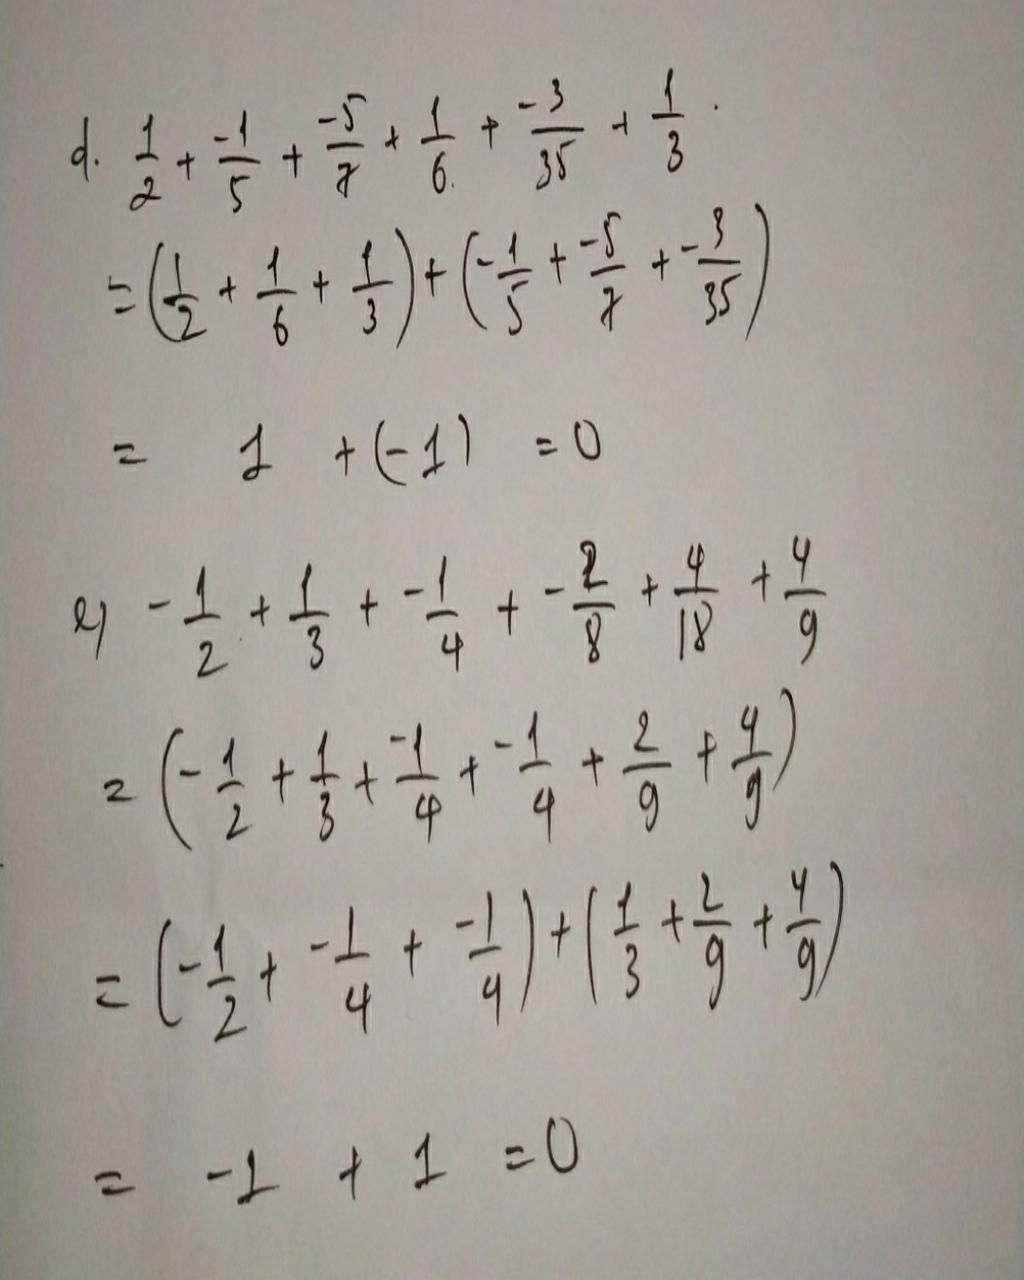 d. 1/2 + -1/5 + -5/7 + 1/6 + -3/35 + 1/3.
= (1/2 + 1/6 + 1/3) + (-1/5 + -5/7 + -3/35)
= 1 + (-1) = 0
e) -1/2 + 1/3 + -1/4 + -2/8 + 4/18 + 4/9
= (-1/2 + 1/3 + -1/4 + -1/4 + 2/9 + 4/9)
= (-1/2 + -1/4 + -1/4) + (1/3 + 2/9 + 4/9)
= -1 + 1 = 0